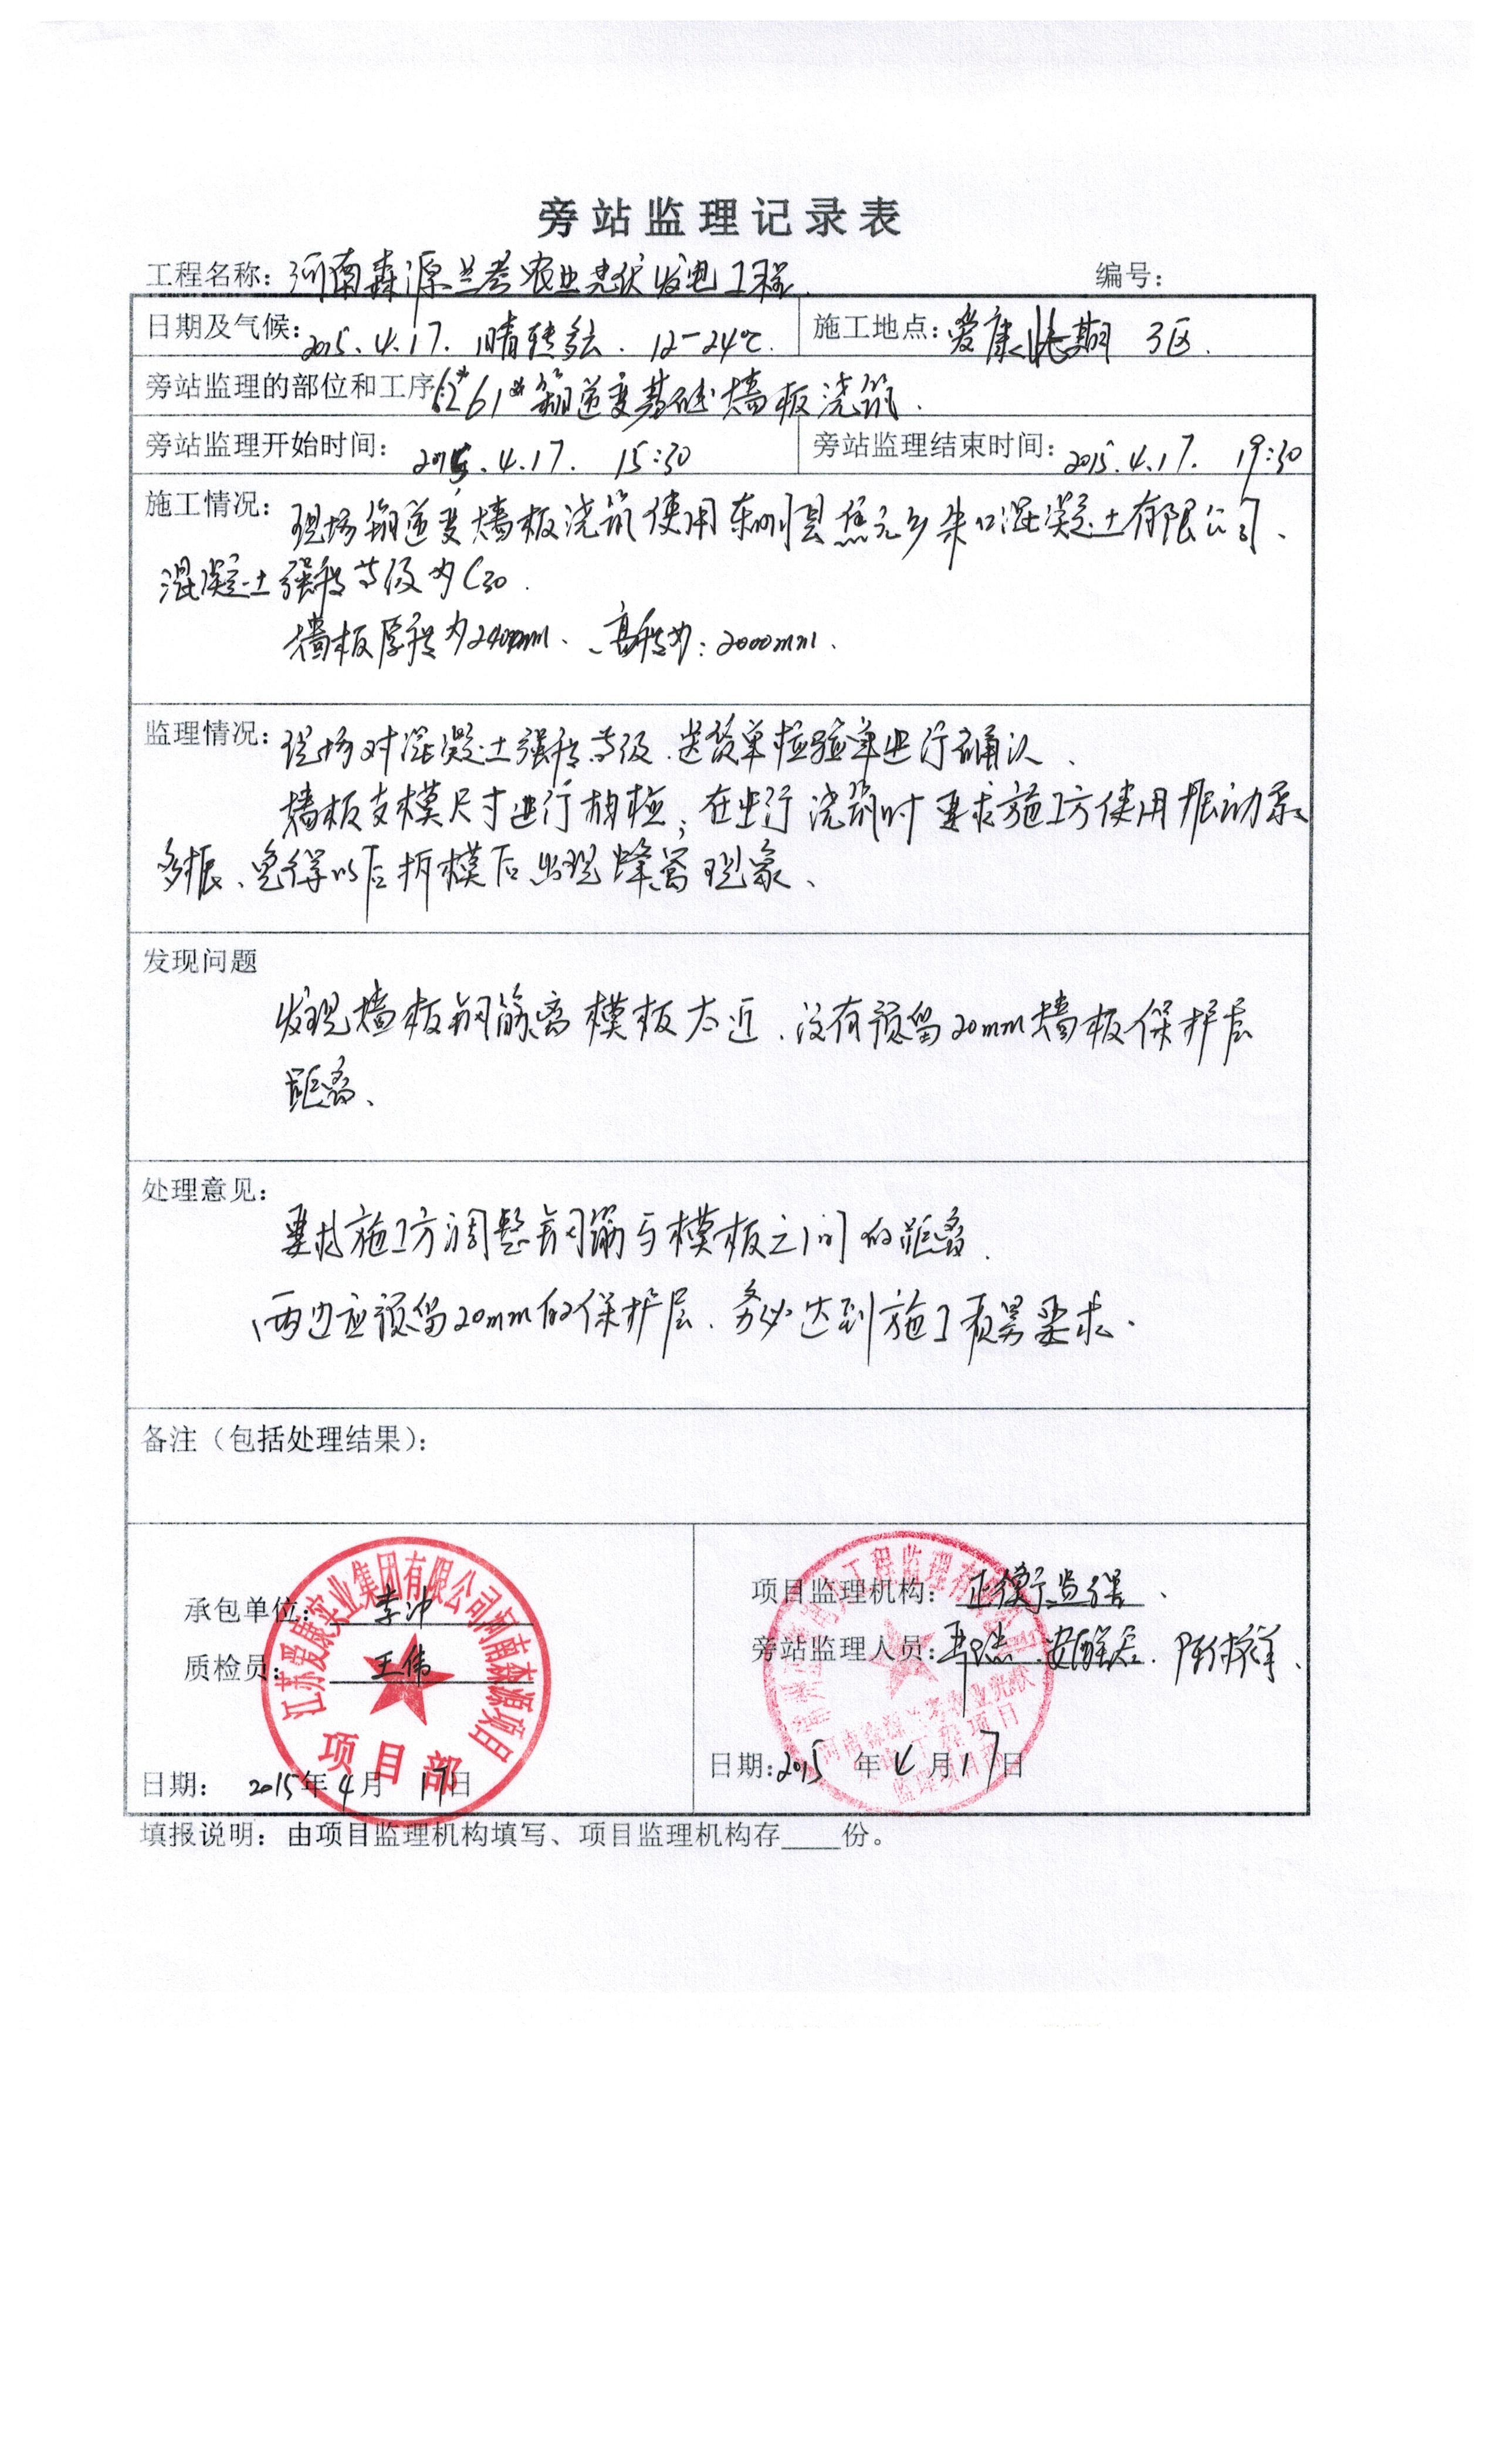 旁站监理记录表
工程名称：河南森源兰考农业光伏发电工程 编号：
日期及气候：2015.4.17. 晴转多云. 12-24℃. 施工地点：爱康 期 3区.
旁站监理的部位和工序 62# 61# 箱逆变基础墙板浇筑.
旁站监理开始时间：2015.4.17. 15:30 旁站监理结束时间：2015.4.17. 19:30
施工情况：现场箱逆变墙板浇筑使用东明县焦元乡朱口混凝土有限公司、
混凝土强度等级为C30.
墙板厚度为240mm、高度为：2000mm.
监理情况：现场对混凝土强度等级.送货单检验单进行确认、
墙板支模尺寸进行抽检；在进行浇筑时要求施工方使用振动泵
多振、免得以后拆模后出现蜂窝现象、
发现问题
发现墙板钢筋离模板太近.没有预留20mm墙板保护层
距离、
处理意见：
要求施工方调整钢筋与模板之间的距离.
两边应预留20mm的保护层.务必达到施工质量要求.
备注（包括处理结果）：
江苏爱康实业集团有限公司河南森源项目
项目部
承包单位：李冲
质检员：王伟
日期： 2015年4月 17日
项目监理机构：正衡监理、
旁站监理人员：
日期:2015 年4月17日
填报说明：由项目监理机构填写、项目监理机构存____份。